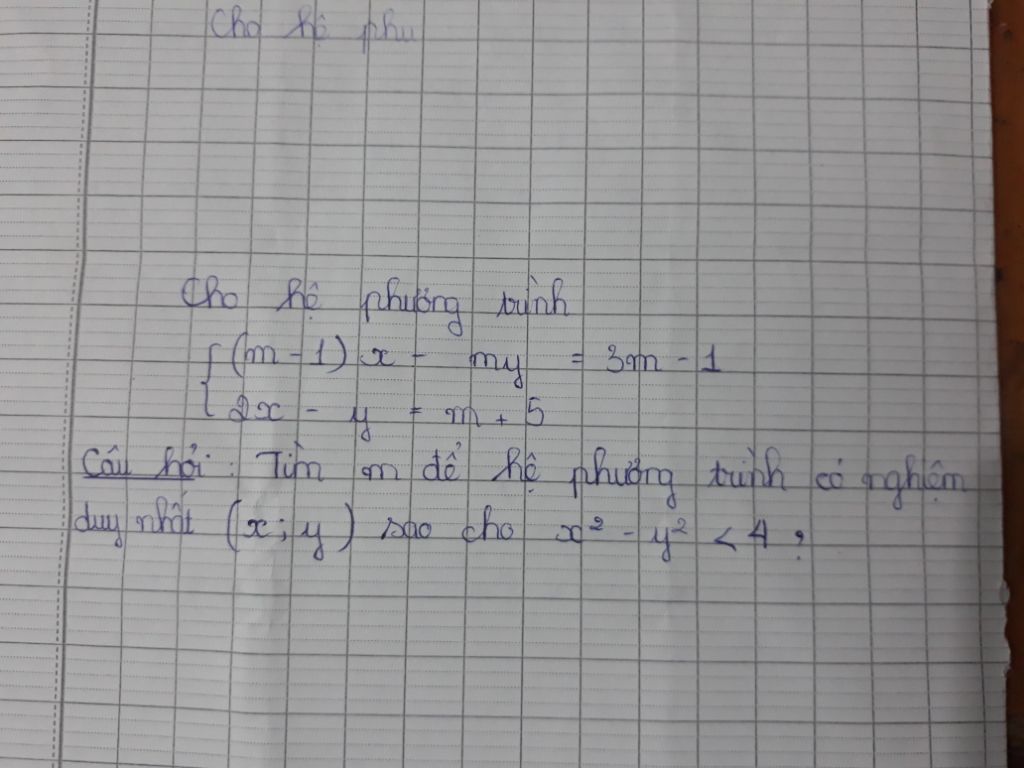 Cho hệ phư
Cho hệ phương trình
(m - 1)x - my = 3m - 1
2x - y = m + 5
Câu hỏi: Tìm m để hệ phương trình có nghiệm
duy nhất (x; y) sao cho x² - y² < 4 ?